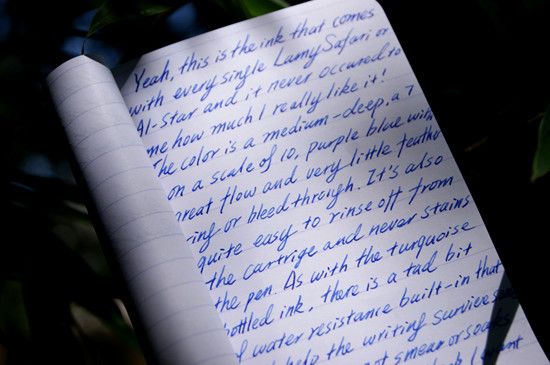 Yeah, this is the ink that comes
with every single Lamy Safari or
Al-Star and it never occured to
me how much I really like it!
The color is a medium-deep, a 7
on a scale of 10, purple blue with
great flow and very little feather
ing or bleedthrough. It's also
quite easy to rinse off from
the cartrige and never stains
the pen. As with the turquoise
bottled ink, there is a tad bit
of water resistance built-in that
help the writing survive
not smear or soak